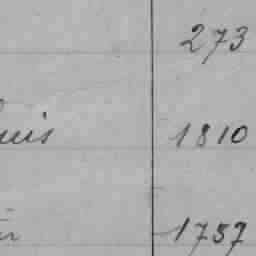 273
uis 1810
1757